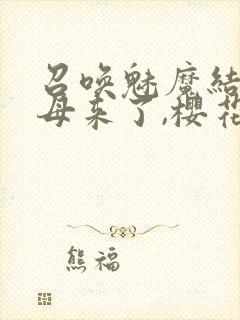 召唤魅魔结
母来了,樱花
熊福